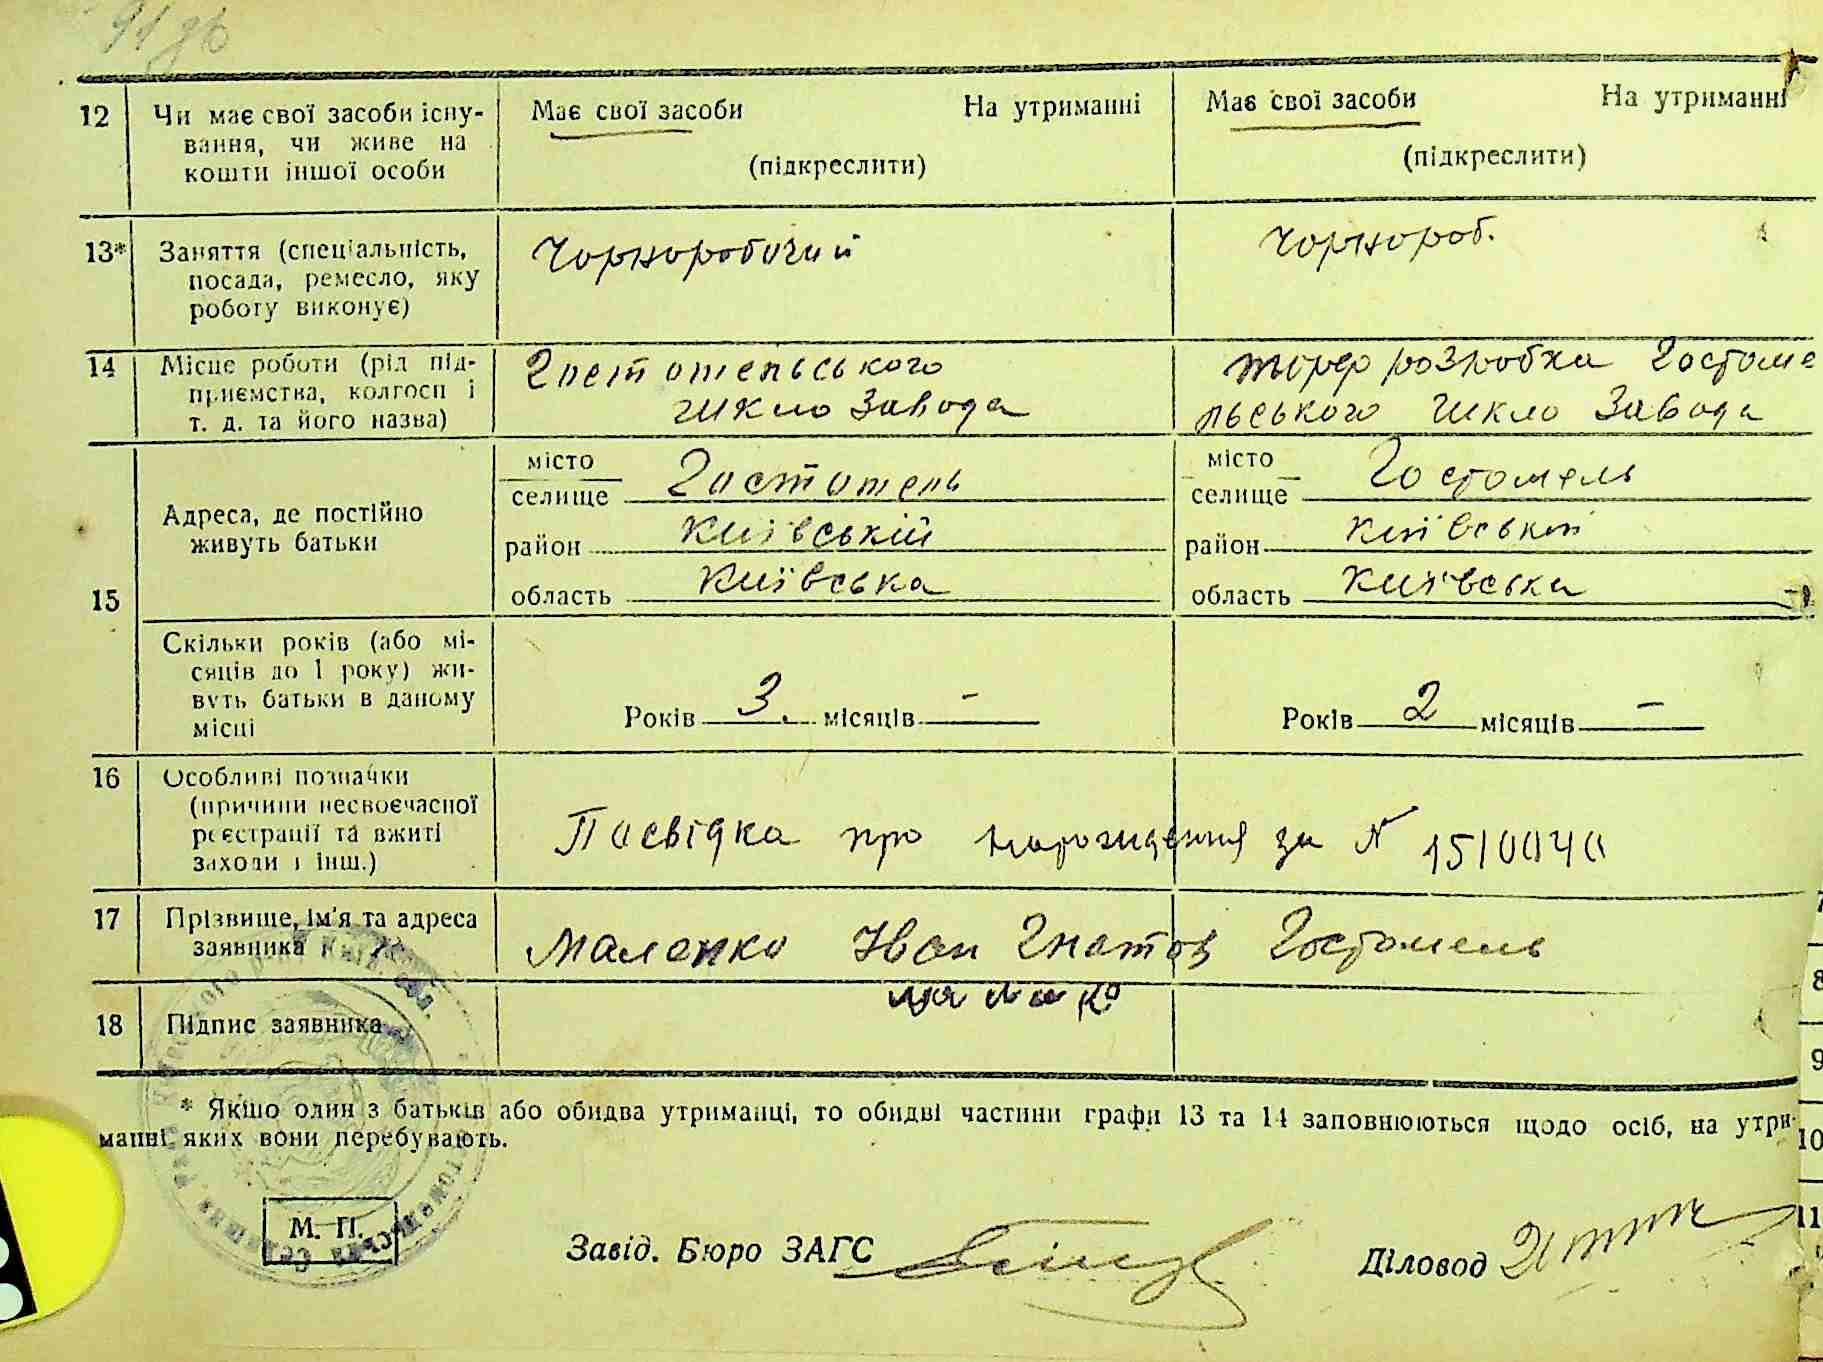 91 зв
12 Чи має свої засоби існу- Має свої засоби На утриманні Має свої засоби На утриманні
вання, чи живе на (підкреслити) (підкреслити)
кошти іншої особи
13* Заняття (спеціальність, Чорноробочий Чорнороб.
посада, ремесло, яку
роботу виконує)
14 Місце роботи (рід під- Гостомельського торфорозробка Гостоме
приємства, колгосп і шкло Завода льського шкло Завода
т. д. та його назва)
15 Адреса, де постійно живуть батьки
місто
селище Гостомель
район Київській
область Київська
місто
селище Гостомель
район Київській
область Київська
Скільки років (або мі-
сяців до 1 року) жи-
вуть батьки в даному
місці
Років 3. місяців – Років 2 місяців –
16 Особливі позначки
(причини несвоєчасної
реєстрації та вжиті
заходи і інш.)
Посвідка про народження за № 1510040
17 Прізвище, ім'я та адреса
заявника
Маленко Іван Гнатов Гостомель
18 Підпис заявника
* Якшо олин з батьків або обидва утриманці, то обидві частини графи 13 та 14 заповнюються щодо осіб, на утри-
манні яких вони перебувають.
М. П.
Завід. Бюро ЗАГС Діловод
8
9
10
11